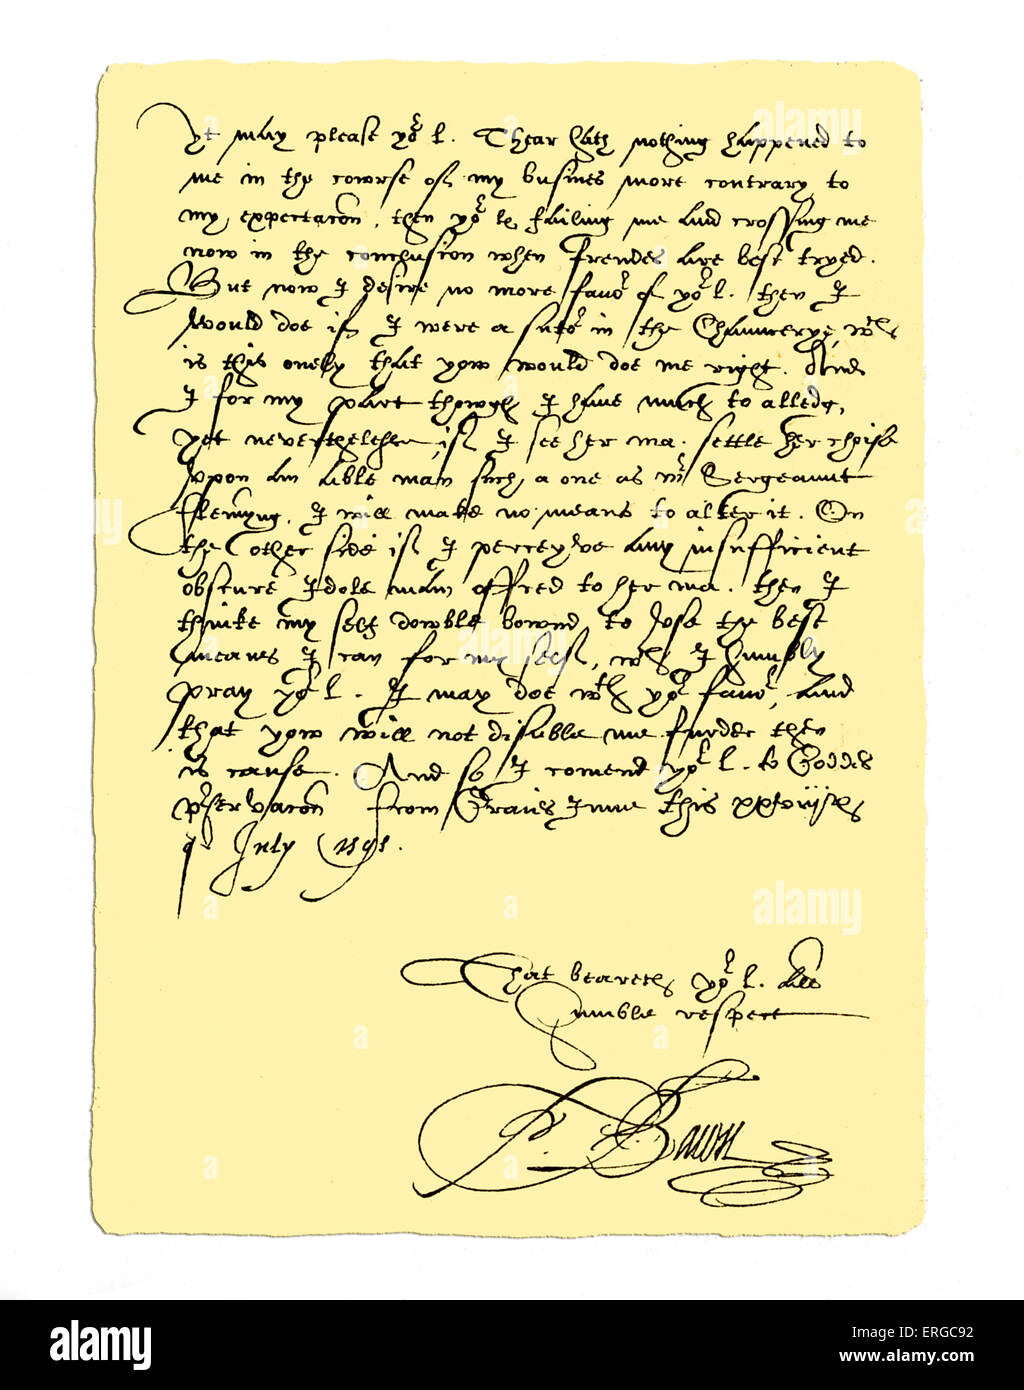 Yt may please yor L. Thear hath nothing happened to
me in the cowrse of my busines more contrary to
my expectacōn, then yor L. failing me and crossing me
now in the conclusion when frendes are best tryed.
But now I desire no more favor of yor L. then I
would doe if I were a sutor in the Chauncerye, wch
is this onely that yow would doe me right. And
I for my part thowgh I have much to alledg,
yet neverthelesse, if I see her Ma. settle her choise
upon an able man such a one as Mr Sergeaunt
flemyng, I will make no means to alter it. On
the other side if I perceyve any insufficient
obscure Idole man offred to her Ma. then I
thinke my self dowble bownd to use the best
meanes I can for my self, wch I humbly
pray yor L. I may doe wth yor favor, and
that yow will not disable me furder then
is cause. And so I comend yor L. to Goddes
prservacōn from Graies Inne this
of July 1595.
That beareth yor L. all
humble respect
Fr. Bacon
alamy
alamy
alamy
a
a
a
a
a
a
a
a
a
alamy
Image ID: ERGC92
www.alamy.com